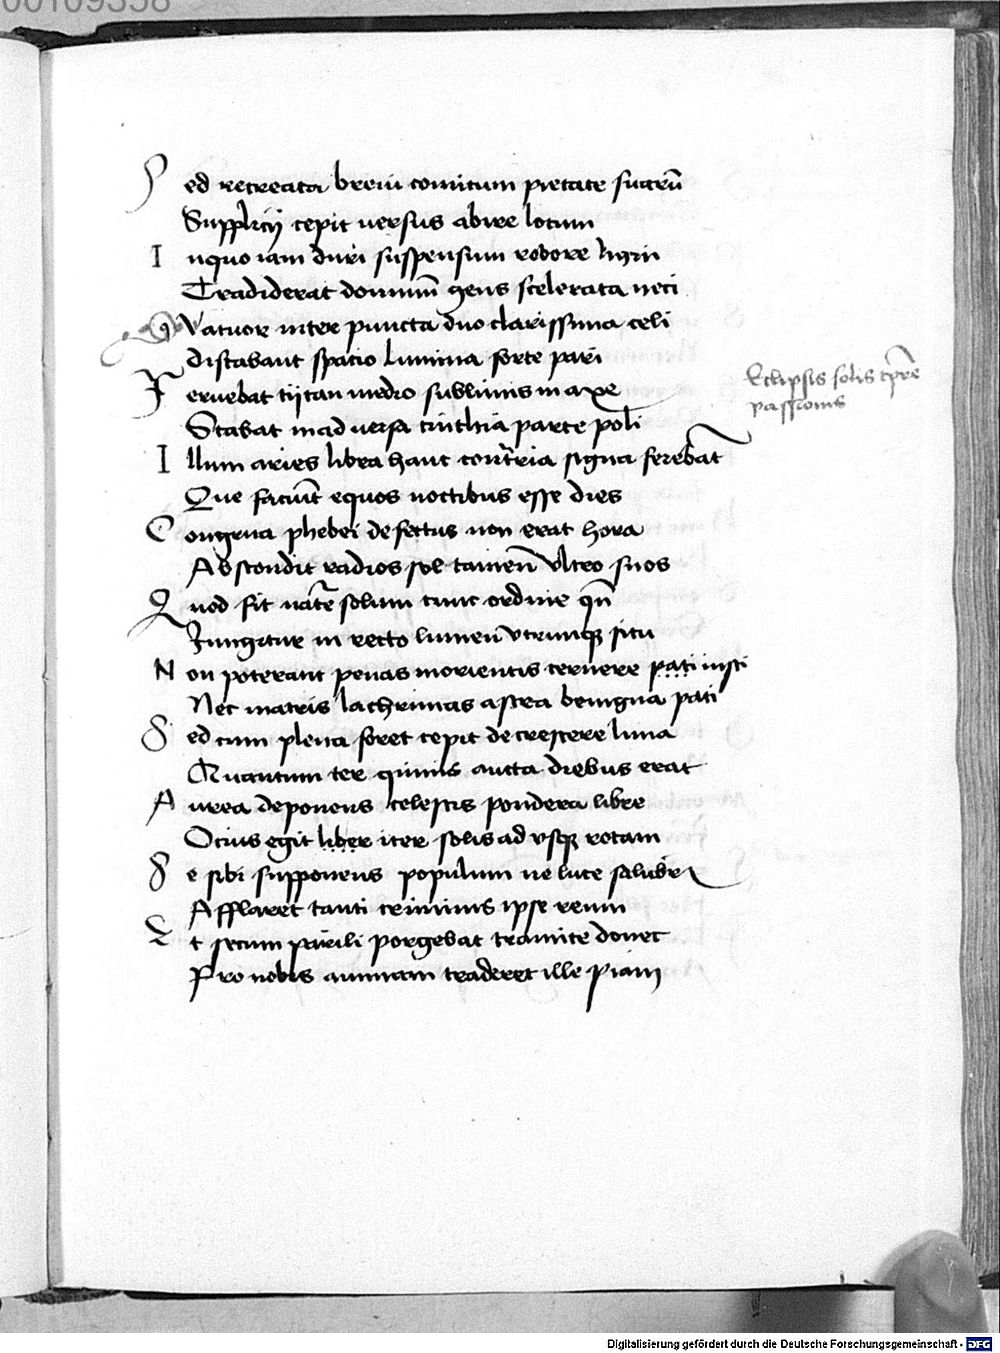 00109358
Sed recreata breui comitum pietate suarū
Supplicij cepit versus abire locum
Inquo iam duri suspensum robore ligni
Tradiderat dominū gens scelerata neci
Quatuor inter puncta duo clarissima celi
distabant spatio lumina forte pari
Feruebat tijtan medio sublimis in axe
Stabat inaduersa cinthia parte poli
Illum aries libra hanc contraria signa ferebāt
Que faciūt equos noctibus esse dies
Congrua phebei defectus non erat hora
Abscondit radios sol tamen vltro suos
Quod fit natēre solum tunc ordine qn̄
Jungitur in recto lumen vtrunq situ
Non poterant penas morientis cernere pati iusti
Nec matris lachrimas astra benigna pati
Sed cum plena foret cepit decrescere luna
Quantum ter quinis aucta diebus erat
Aurea deponens celestis pondera libre
Ocius egit liber iter solis ad vsq rotam
Se sibi supponens populum ne luce salubri
Afflaret tanti criminis ipse reum
Et secum parili porgebat tramite donec
Pro nobis animam traderet ille piam
Eclipsis solis tp̄re
passionis
Digitalisierung gefördert durch die Deutsche Forschungsgemeinschaft - DFG